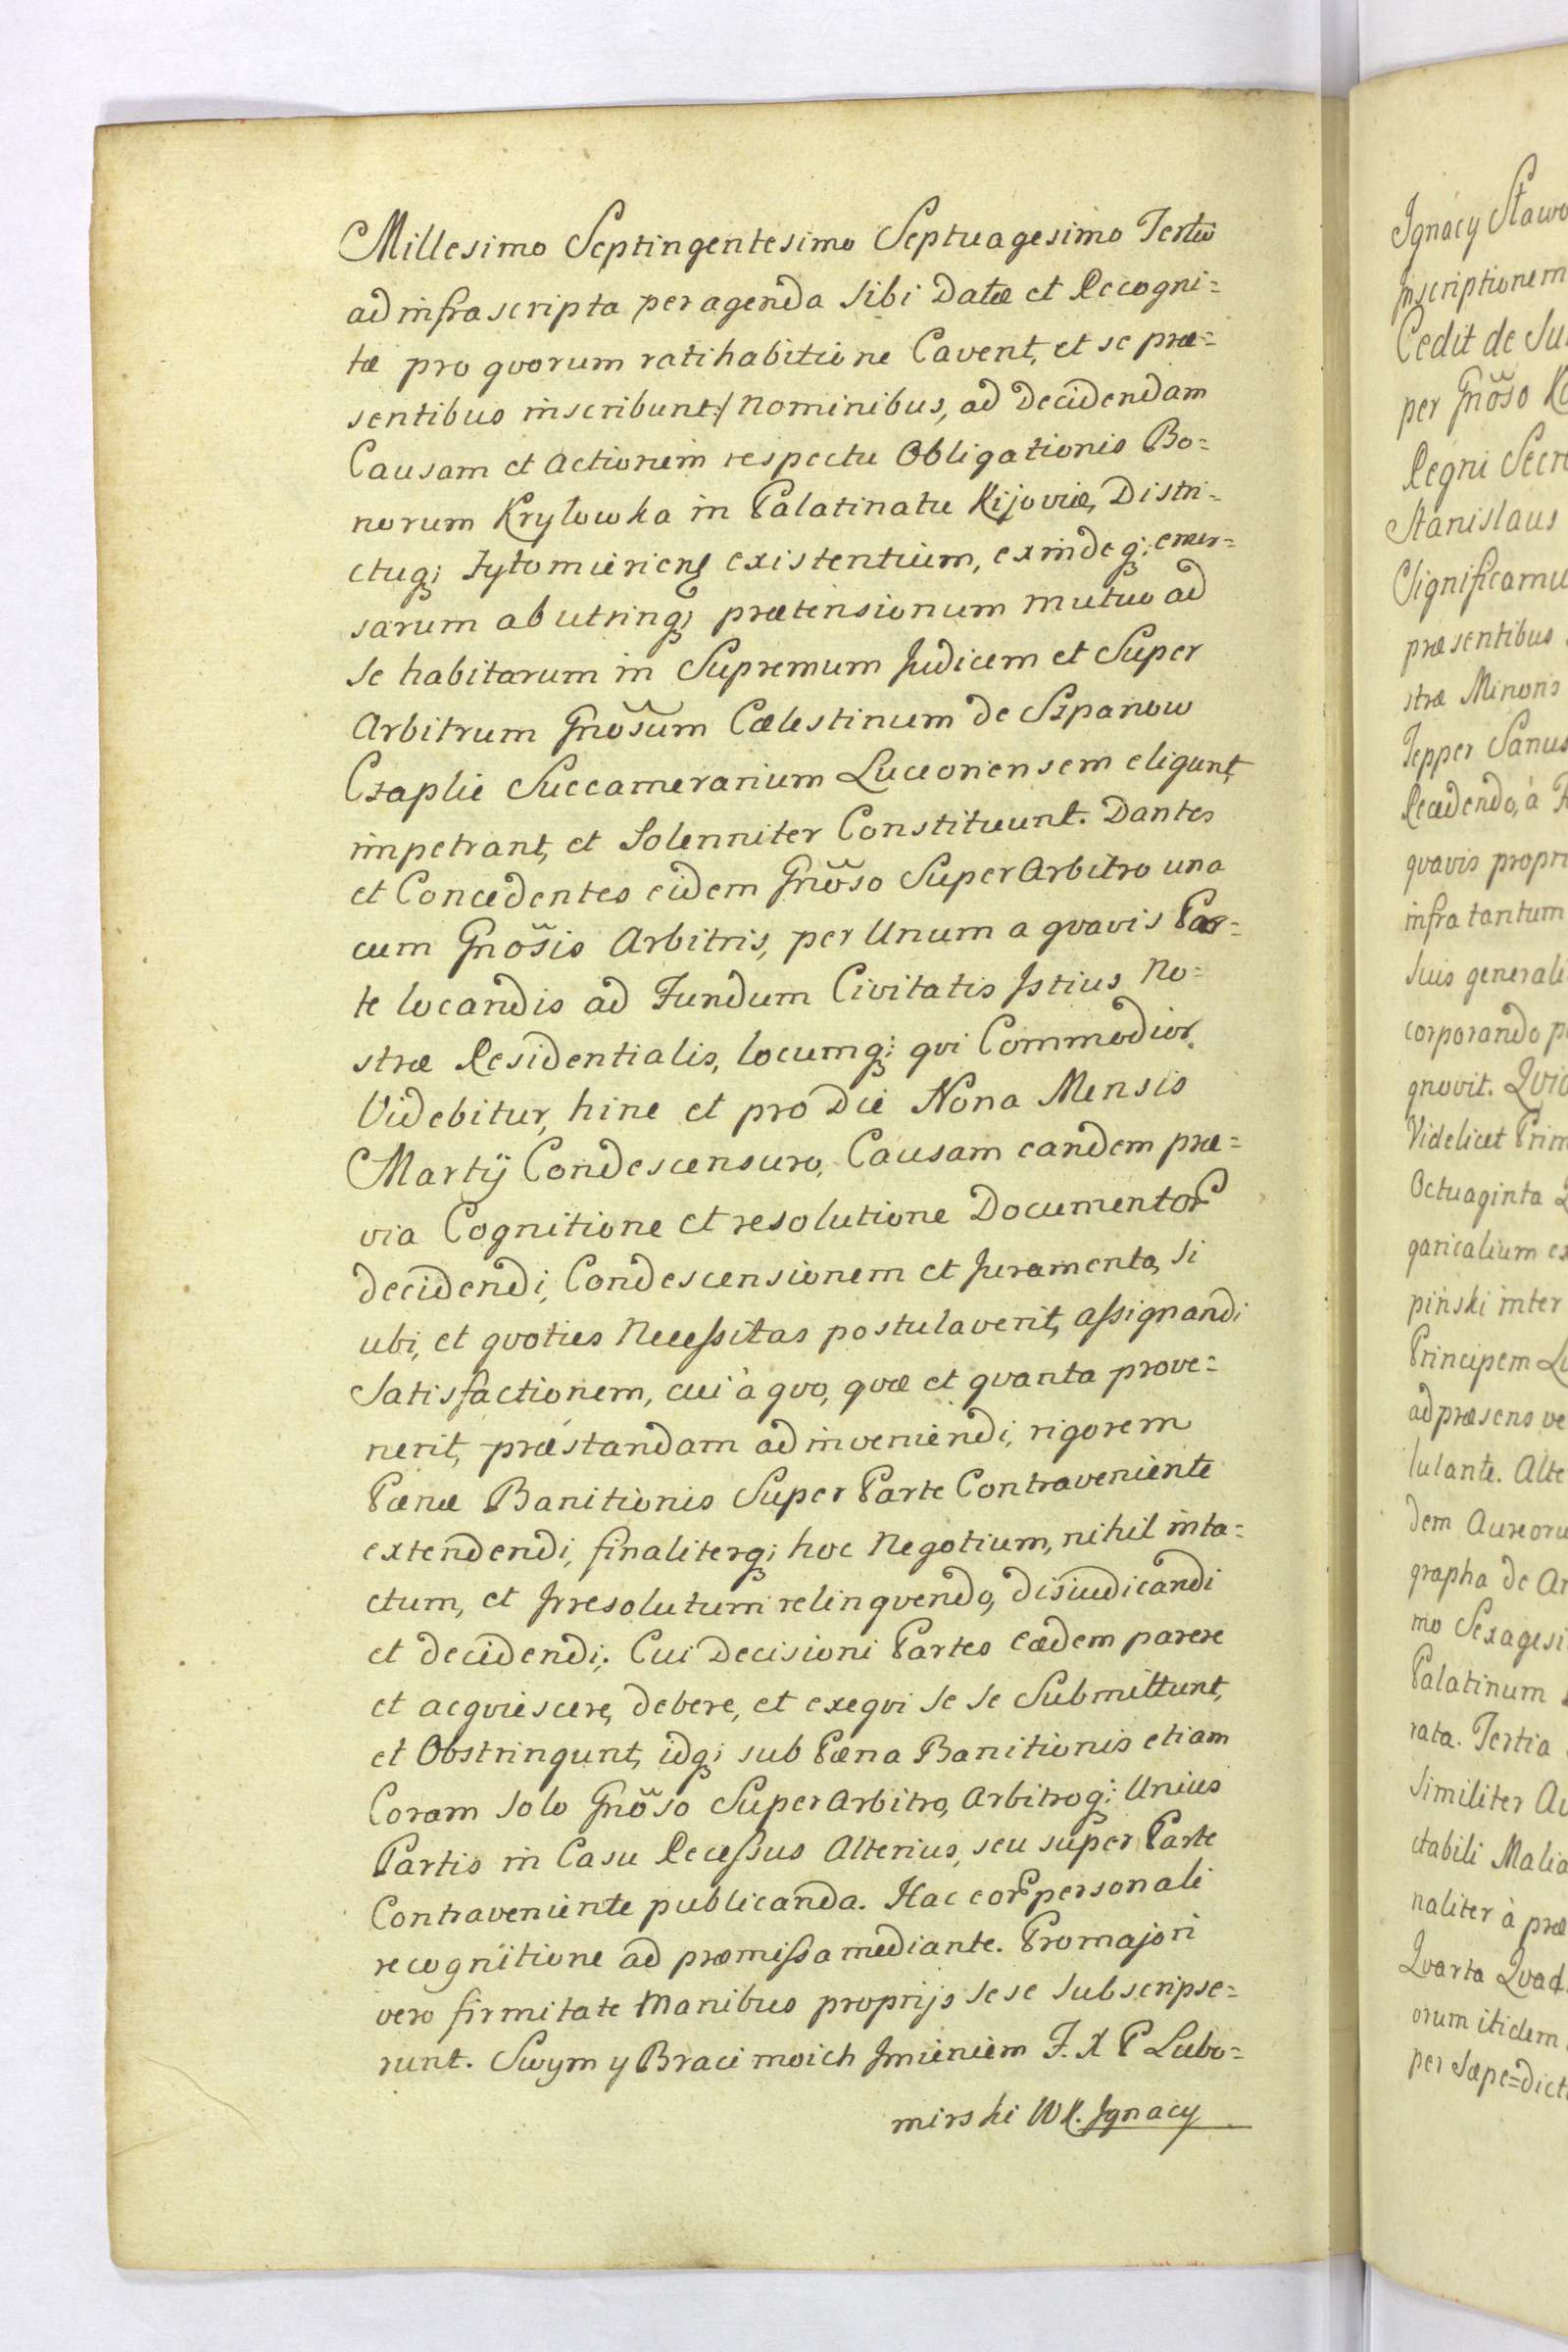 Millesimo Septingentesimo Septuagesimo Tertio
ad infra scripta peragenda sibi Datæ et Recogni=
tæ pro qvorum ratihabitione Cavent, et se præ=
sentibus inscribunt:/ Nominibus, ad Decidendam
Causam et Actionem respectu Obligationis Bo=
norum Kryłowka in Palatinatu Kijoviæ, Distri=
ctuq; Żytomirien existentium, exindeq; emer=
sarum ab utrinq; prætensionum mutuo ad
se habitarum in Supremum Judicem et Super
Arbitrum Gnosum Cælestinum de Szpanow
Czaplic Succamerarium Luceoriensem eligunt,
impetrant, et Solenniter Constituunt. Dantes
et Concedentes eidem Gnoso Super Arbitro una
cum Gnosis Arbitris, per Unum a qvavis Par=
te locandis ad Fundum Civitatis Istius No=
stræ Residentialis, locumq; qvi Commodior
Videbitur, hinc et pro Die Nona Mensis
Martij Condescensuro, Causam eandem præ=
via Cognitione et resolutione Documentor
decidendi, Condescensionem et Juramenta, si
ubi, et qvoties Necessitas postulaverit, assignandi
Satisfactionem, cui à qvo, qvæ et qvanta prove=
nerit, præstandam adinveniendi, rigorem
Pænæ Banitionis Super Parte Contraveniente
extendendi, finaliterq; hoc Negotium, nihil inta=
ctum, et Irresolutum relinqvendo, disiudicandi
et decidendi. Cui Decisioni Partes eædem parere
et acqviescere, debere, et exeqvi se se Submittunt,
et Obstringunt, idq; sub Pæna Banitionis etiam
Coram solo Gnoso Super Arbitro, Arbitroq; Unius
Partis in Casu Recessus Alterius, seu super Parte
Contraveniente publicanda. Hac eor personali
recognitione ad præmissa mediante. Pro majori
vero firmitate Manibus proprijs sese subscripse=
runt. Swym y Braci moich Imieniem F. X P Lubo=
mirski WK. Ignacy
Ignacy
Inscriptionem
Cedit de
per Gnoso
Regni
Stanislaus
præsentibus
stræ Minoris
Tepper
Recedendo, à
qvavis
infra tantum
suis
corporando
gnovit.
Videlicet
Octuaginta
piński inter
Principem
ad præsens
lulante.
dem
grapha de
mo
Palatinum
rata. Tertia
Similiter
ctabili
naliter à
Qvarta
orum itidem
per sæpe=